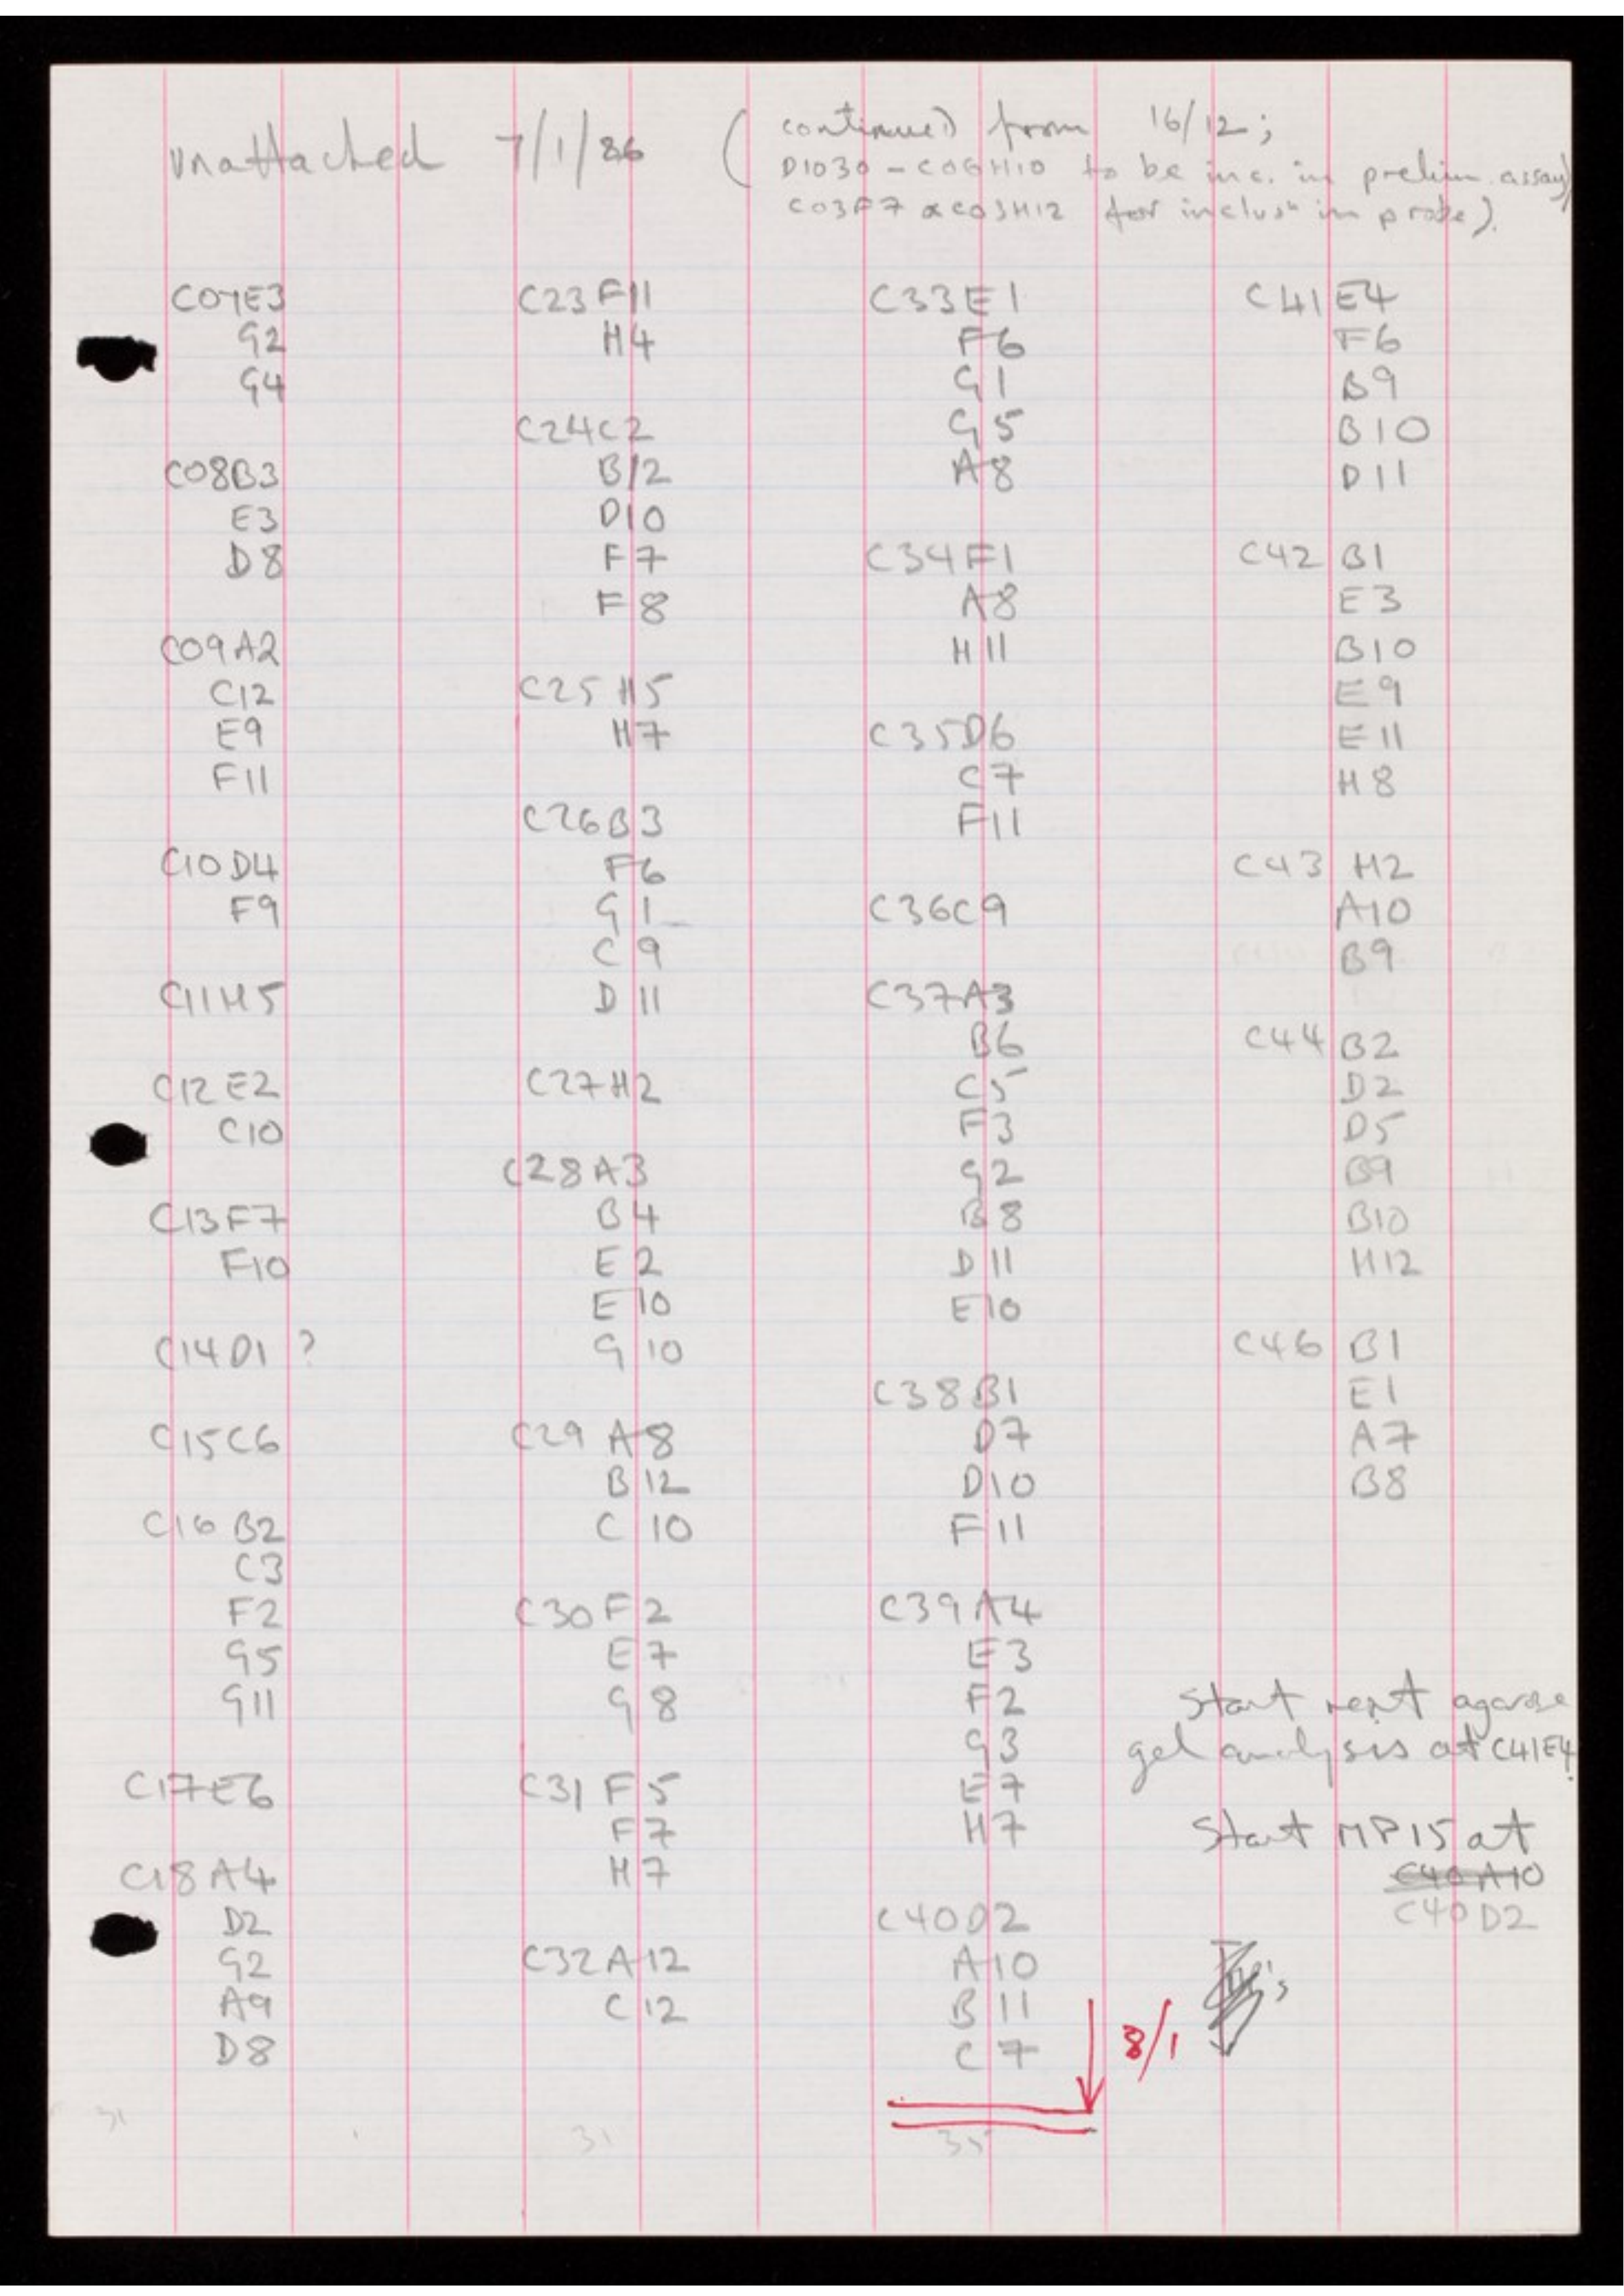 unattached 7/1/86 (continued from 16/12;
D1030 - C06H10 to be inc. in prelim. assay
C03F7 & C03H12 for inclusn in probe).
C07E3
G2
G4
C08B3
E3
D8
C09A2
C12
E9
F11
C10D4
F9
C11H5
C12E2
C10
C13F7
F10
C14D1 ?
C15C6
C16 B2
C3
F2
G5
G11
C17E6
C18A4
D2
G2
A9
D8
31
C23F11
H4
C24C2
B12
D10
F7
F8
C25H5
H7
C26B3
F6
G1
C9
D11
C27H2
C28A3
B4
E2
E10
G10
C29 A8
B12
C10
C30F2
E7
G8
C31F5
F7
H7
C32A12
C12
31
C33E1
F6
G1
G5
A8
C34F1
A8
H11
C35D6
C7
F11
C36C9
C37A3
B6
C5
F3
G2
B8
D11
E10
C38B1
D7
D10
F11
C39A4
E3
F2
G3
E7
H7
C40D2
A10
B11
C7
8/1
35
C41E4
F6
B9
B10
D11
C42 B1
E3
B10
E9
E11
H8
C43 H2
A10
B9
C44 B2
D2
D5
B9
B10
H12
C46 B1
E1
A7
B8
Start next agarose
gel analysis at C41E4.
Start MP15 at
C40A10
C40D2